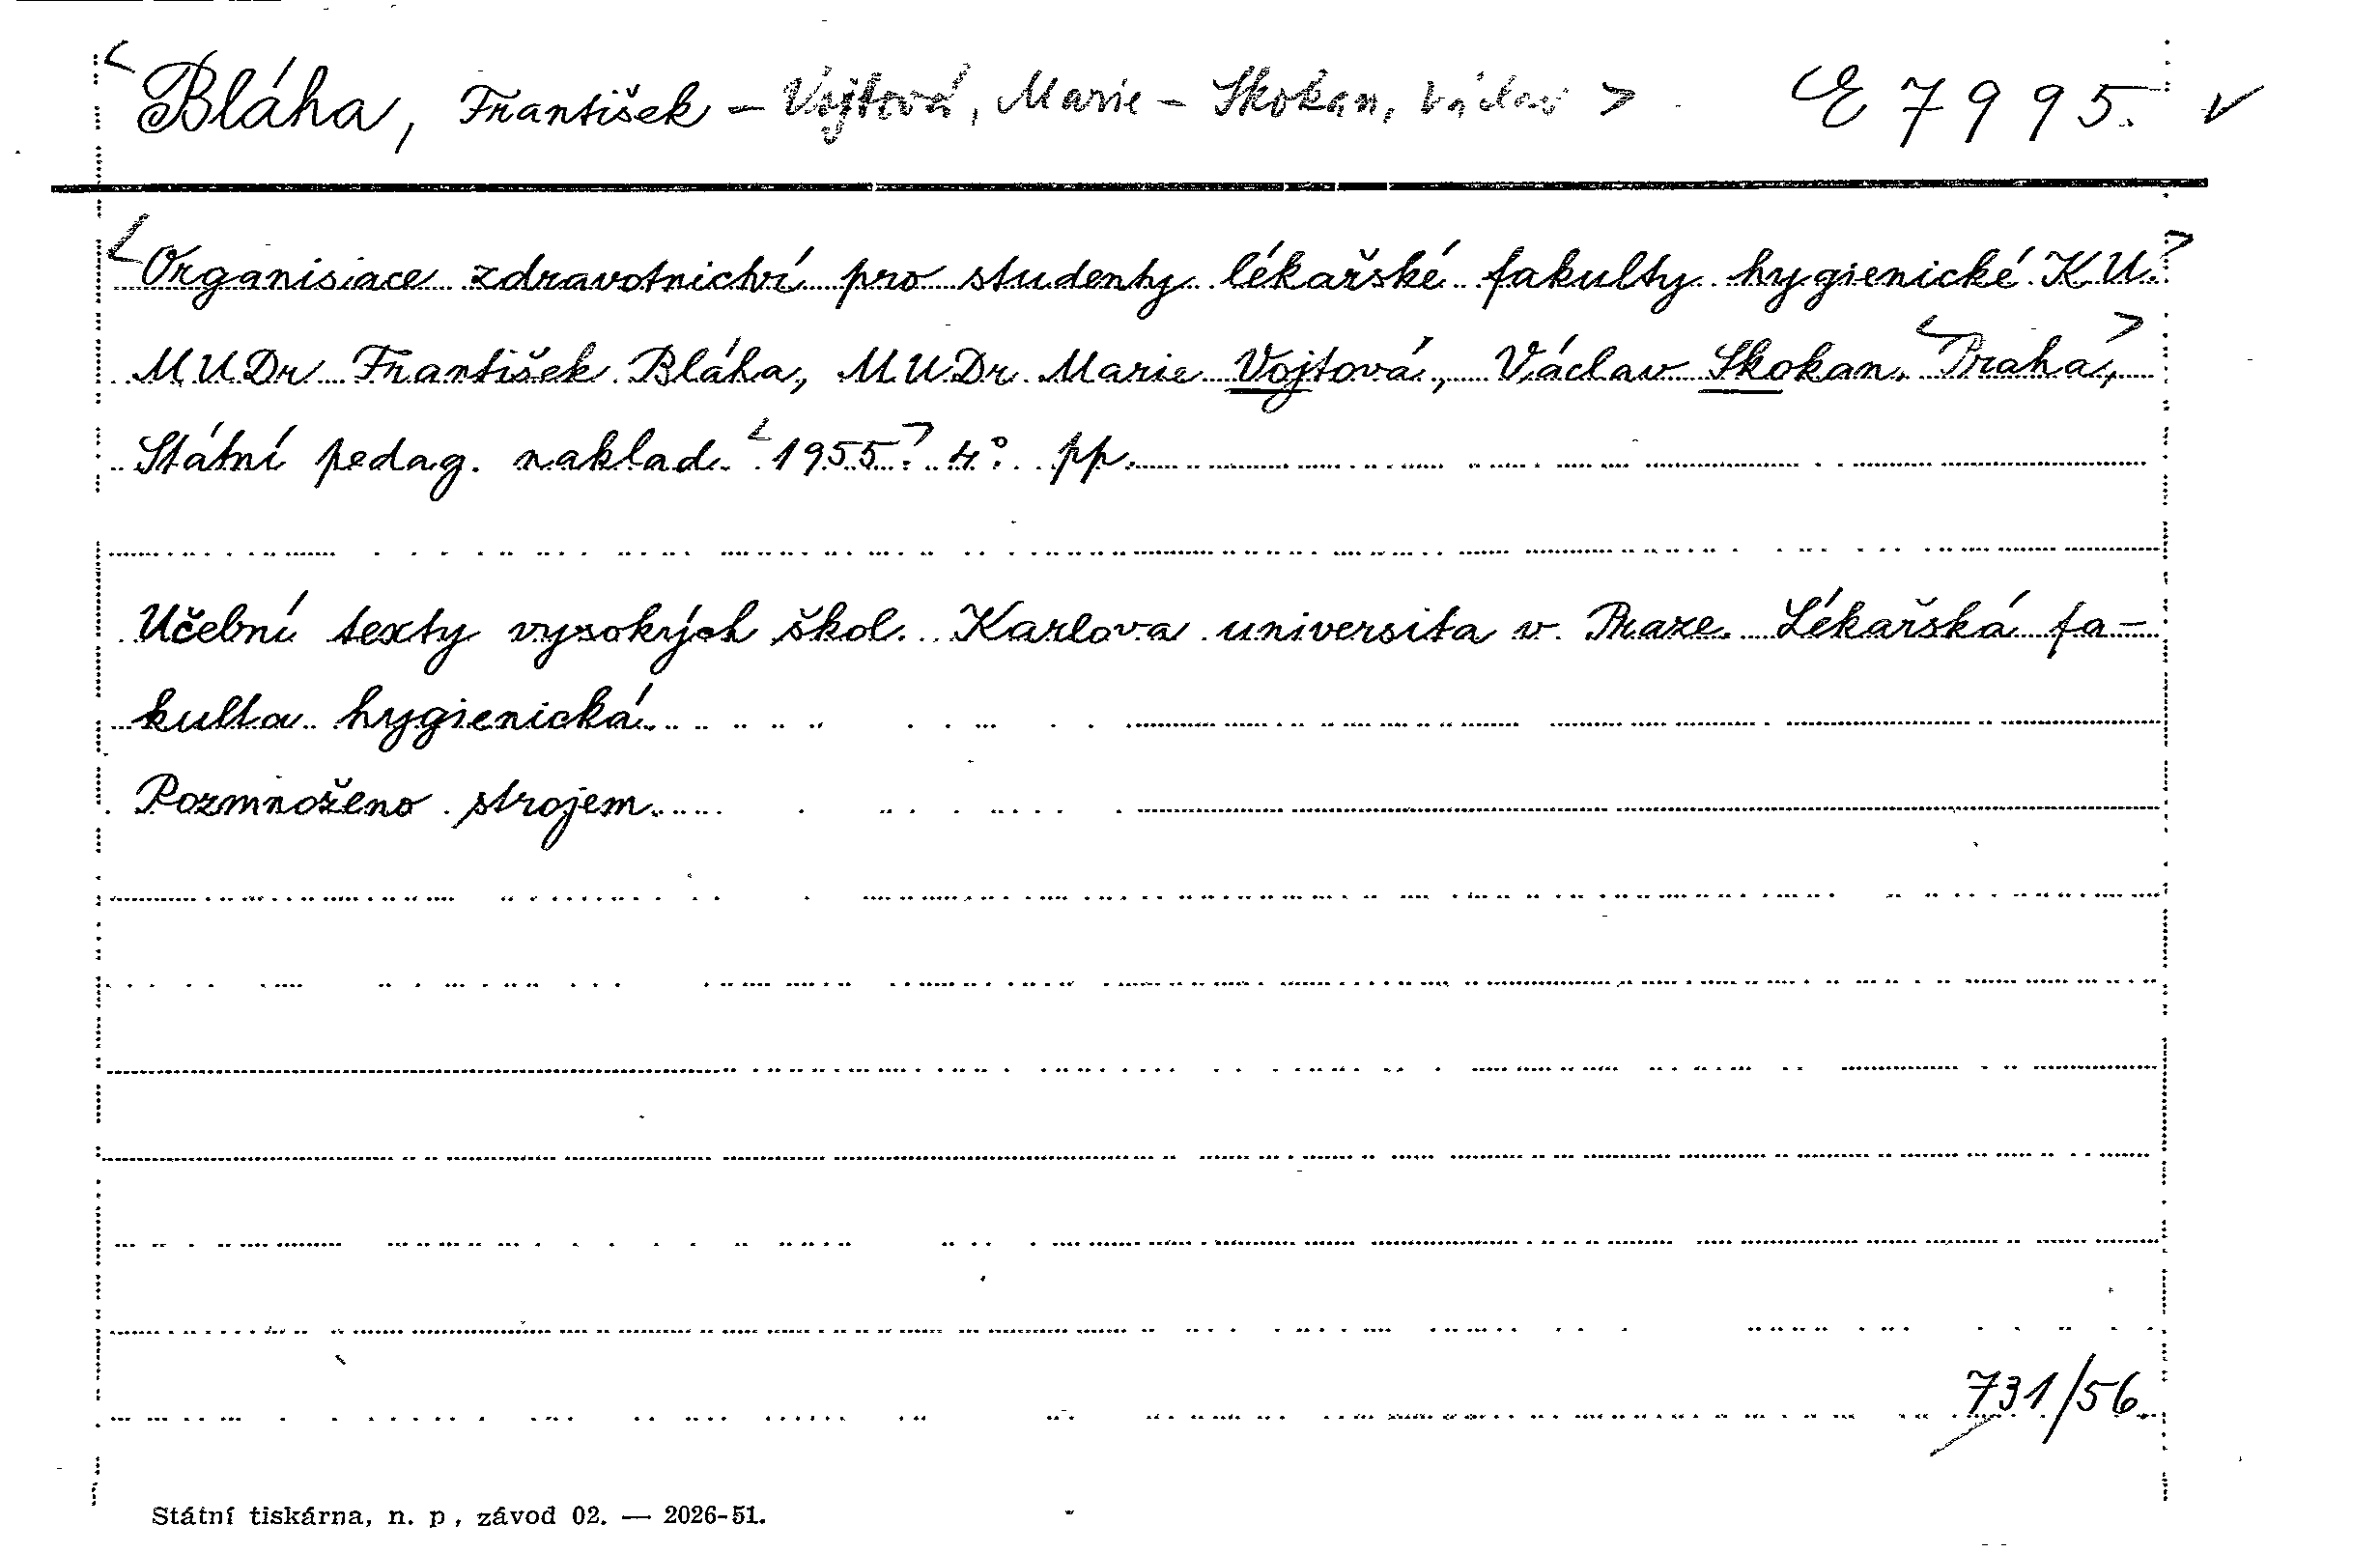 <Bláha, František – Vojtová, Marie – Skokan, Václav> E 7995. v
<Organisace zdravotnictví pro studenty lékařské fakulty hygienické KU.>
MUDr František Bláha, MUDr Marie Vojtová, Václav Skokan. <Praha,>
Státní pedag. naklad. <1955.> 4°. pp.
Učební texty vysokých škol. Karlova universita v Praze. Lékařská fa-
kulta hygienická.
Rozmnoženo strojem.
731/56
Státní tiskárna, n. p., závod 02. — 2026-51.